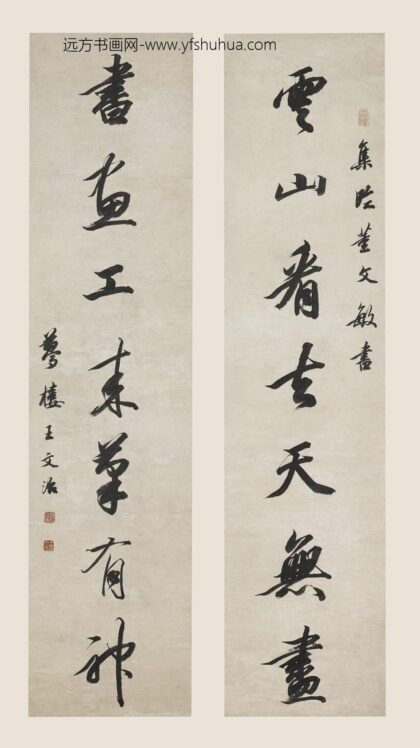 远方书画网-www.yfshuhua.com
集臨董文敏書
雲山看去天無盡
書畫工來筆有神
夢樓王文治